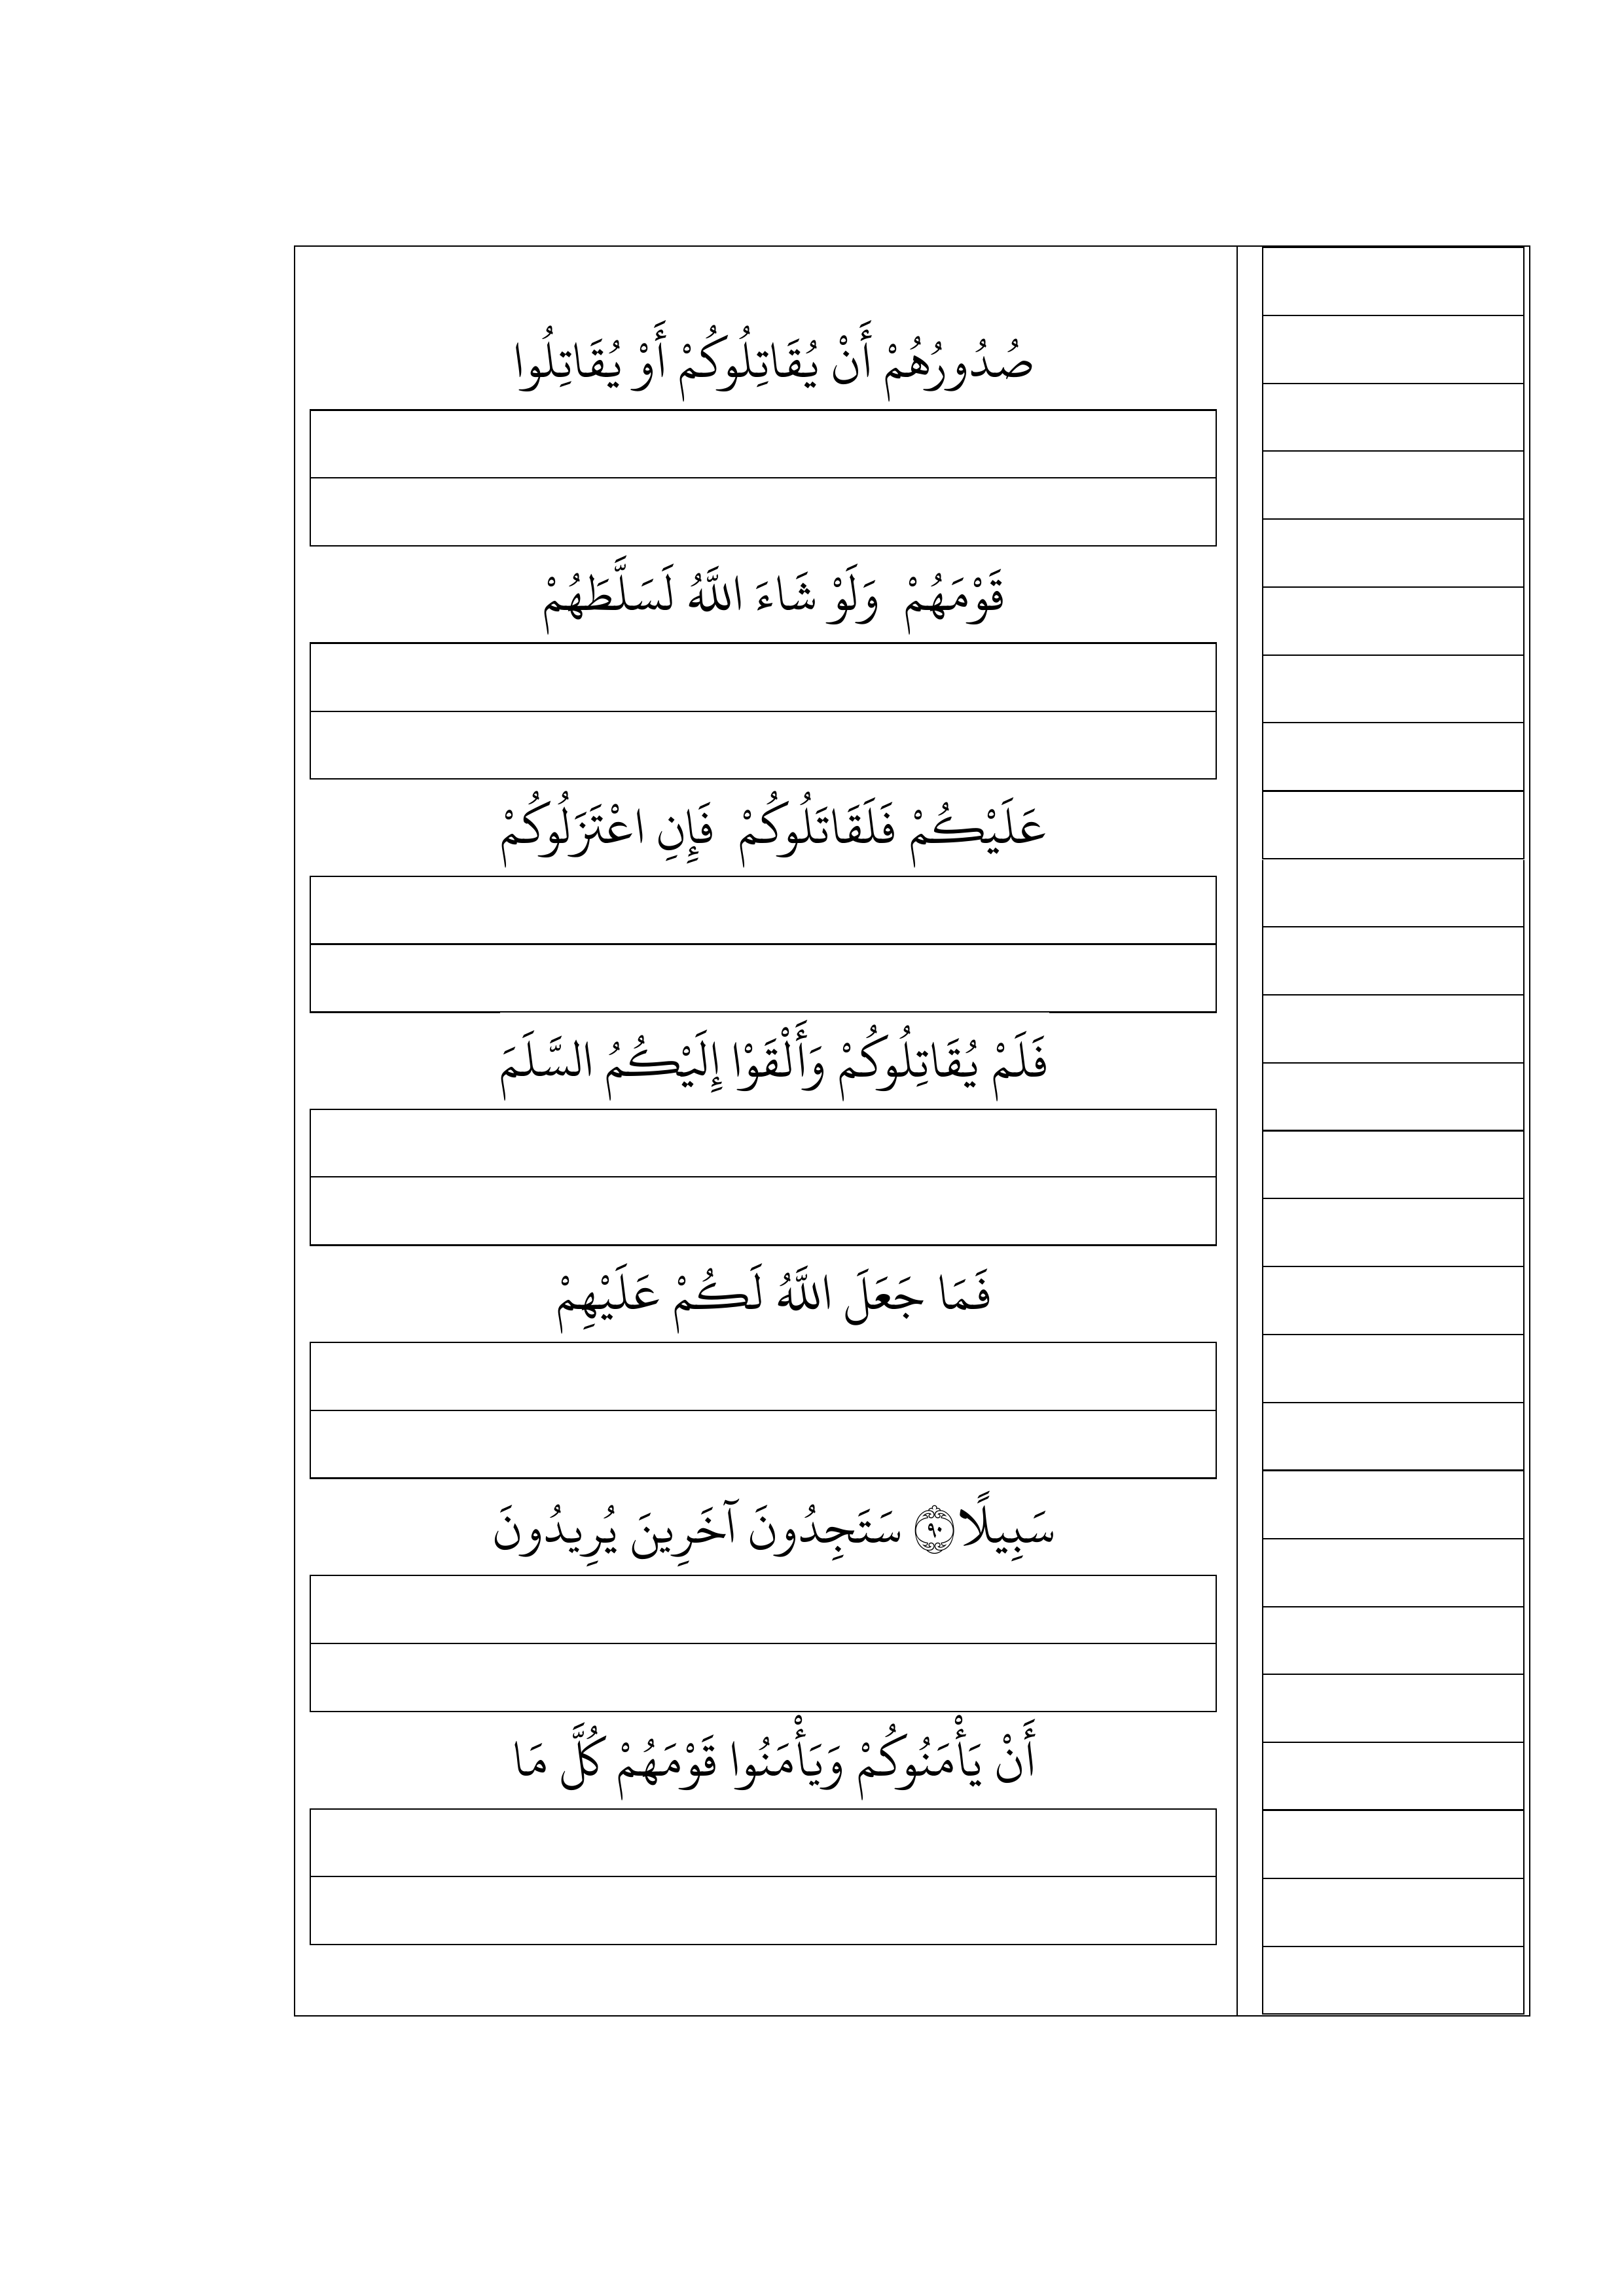 صُدُورُهُمْ أَنْ يُقَاتِلُوكُمْ أَوْ يُقَاتِلُوا
قَوْمَهُمْ وَلَوْ شَاءَ اللَّهُ لَسَلَّطَهُمْ
عَلَيْكُمْ فَلَقَاتَلُوكُمْ فَإِنِ اعْتَزَلُوكُمْ
فَلَمْ يُقَاتِلُوكُمْ وَأَلْقَوْا إِلَيْكُمُ السَّلَمَ
فَمَا جَعَلَ اللَّهُ لَكُمْ عَلَيْهِمْ
سَبِيلًا ۝٩٠ سَتَجِدُونَ آخَرِينَ يُرِيدُونَ
أَنْ يَأْمَنُوكُمْ وَيَأْمَنُوا قَوْمَهُمْ كُلَّ مَا